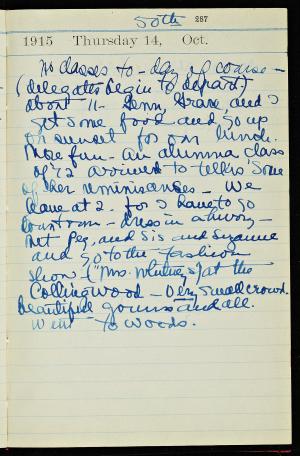 50th 287
1915 Thursday 14, Oct.
No classes to-day of course -
(delegates begin to depart)
about 11 - Jenn, Grace, and I
get some food and go up
on sunset for our lunch.
More fun - an alumna class
of '72 arrived to tell us some
of her reminisances - We
leave at 2. for I have to go
down town - dress in a hurry -
met Peg, and Sis and Suzanne
and go to the fashion
show - ("Mrs. Whitney's) at the
Collingwood - Very small crowd.
beautiful gowns and all.
Went to Woods.